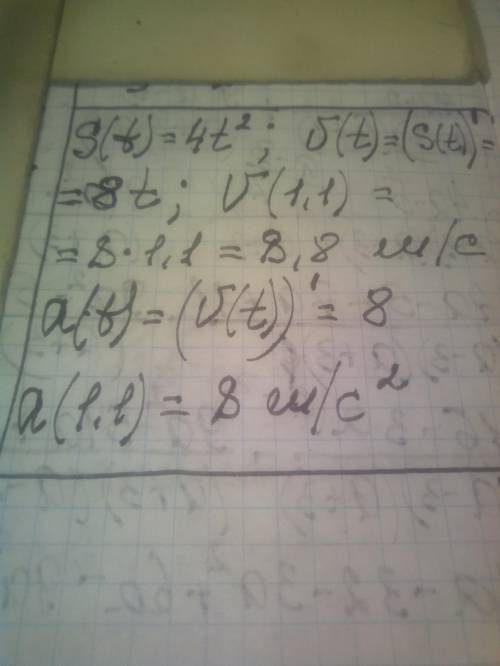 S(t) = 4t²; v(t) = (S(t))' =
= 8t; v(1,1) =
= 8 · 1,1 = 8,8 м/с
a(t) = (v(t))' = 8
a(1,1) = 8 м/с²